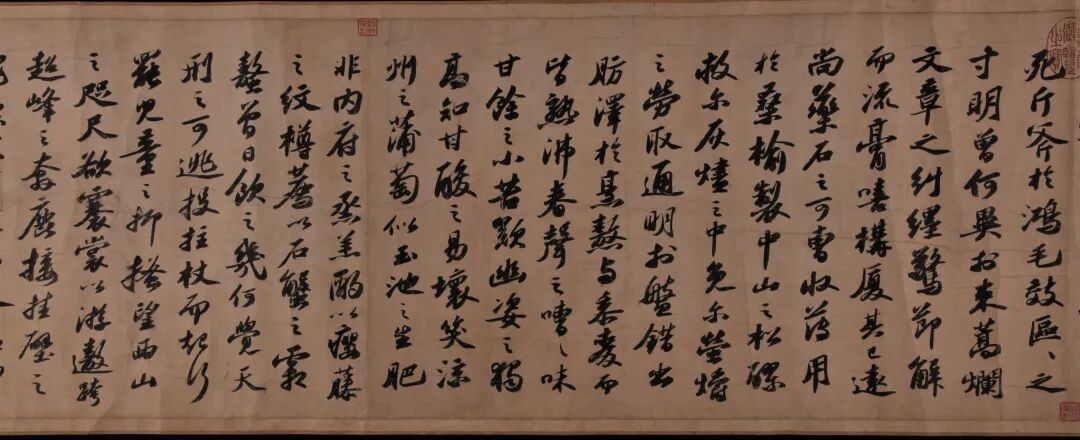 死斤斧於鴻毛效區〻之
寸明曾何異於束蒿爛
文章之糾纆驚節解
而流膏嘻構厦其已遠
尚藥石之可曹收薄用
於桑榆製中山之松醪
救尔灰燼之中免尔螢爝
之勞取通明於盤錯出
肪澤於烹熬与黍麥而
皆熟沸舂聲之嘈〻味
甘餘之小苦歎幽姿之獨
高知甘酸之易壞笑涼
州之蒲萄似玉池之生肥
非内府之烝羔酌以癭藤
之紋樽薦以石蟹之霜
螯曾日飲之幾何覺天
刑之可逃投拄杖而起行
罷兒童之抑搔望西山
之咫尺欲褰裳以游遨跨
超峰之奔鹿接挂壁之